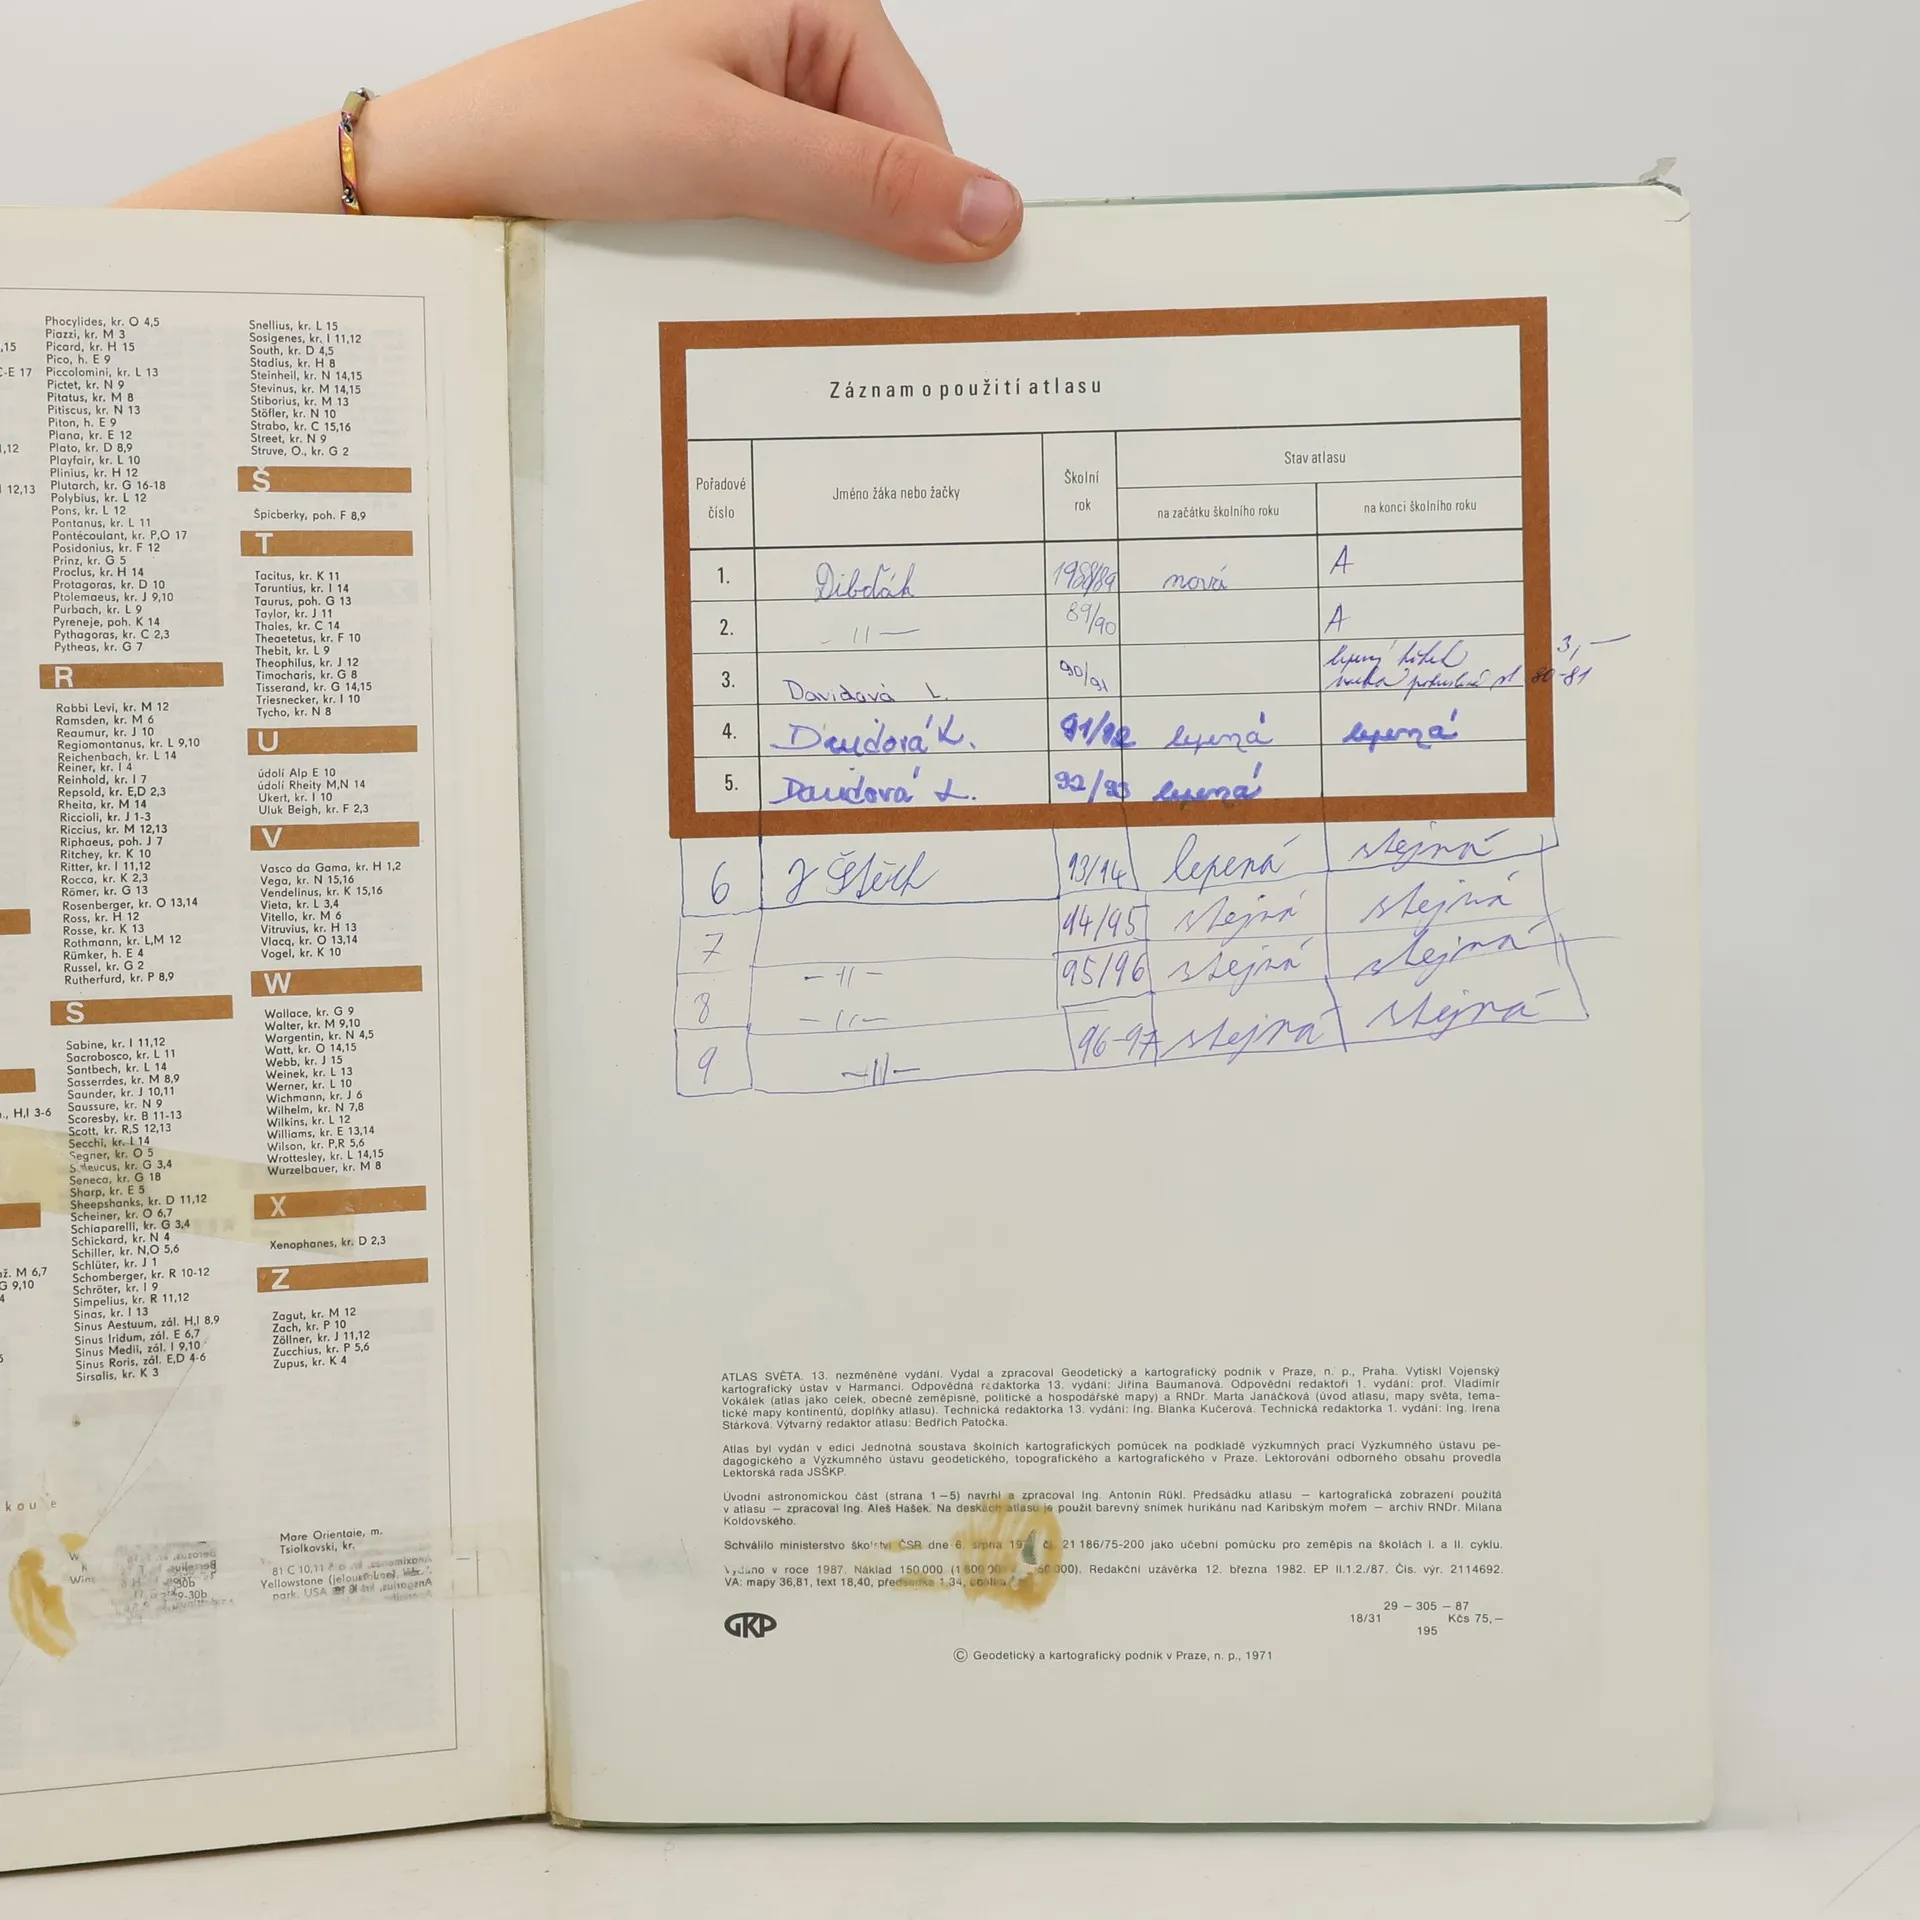 ,15
C-E 17
1,12
12,13
., H,I 3-6
až. M 6,7
G 9,10
4
Phocylides, kr. O 4,5
Piazzi, kr. M 3
Picard, kr. H 15
Pico, h. E 9
Piccolomini, kr. L 13
Pictet, kr. N 9
Pitatus, kr. M 8
Pitiscus, kr. N 13
Piton, h. E 9
Plana, kr. E 12
Plato, kr. D 8,9
Playfair, kr. L 10
Plinius, kr. H 12
Plutarch, kr. G 16-18
Polybius, kr. L 12
Pons, kr. L 12
Pontanus, kr. L 11
Pontécoulant, kr. P,O 17
Posidonius, kr. F 12
Prinz, kr. G 5
Proclus, kr. H 14
Protagoras, kr. D 10
Ptolemaeus, kr. J 9,10
Purbach, kr. L 9
Pyreneje, poh. K 14
Pythagoras, kr. C 2,3
Pytheas, kr. G 7
R
Rabbi Levi, kr. M 12
Ramsden, kr. M 6
Reaumur, kr. J 10
Regiomontanus, kr. L 9,10
Reichenbach, kr. L 14
Reiner, kr. I 4
Reinhold, kr. I 7
Repsold, kr. E,D 2,3
Rheita, kr. M 14
Riccioli, kr. J 1-3
Riccius, kr. M 12,13
Riphaeus, poh. J 7
Ritchey, kr. K 10
Ritter, kr. I 11,12
Rocca, kr. K 2,3
Römer, kr. G 13
Rosenberger, kr. O 13,14
Ross, kr. H 12
Rosse, kr. K 13
Rothmann, kr. L,M 12
Rümker, h. E 4
Russel, kr. G 2
Rutherfurd, kr. P 8,9
S
Sabine, kr. I 11,12
Sacrobosco, kr. L 11
Santbech, kr. L 14
Sasserrdes, kr. M 8,9
Saunder, kr. J 10,11
Saussure, kr. N 9
Scoresby, kr. B 11-13
Scott, kr. R,S 12,13
Secchi, kr. I 14
Segner, kr. O 5
Seleucus, kr. G 3,4
Seneca, kr. G 18
Sharp, kr. E 5
Sheepshanks, kr. D 11,12
Scheiner, kr. O 6,7
Schiaparelli, kr. G 3,4
Schickard, kr. N 4
Schiller, kr. N,O 5,6
Schlüter, kr. J 1
Schomberger, kr. R 10-12
Schröter, kr. I 9
Simpelius, kr. R 11,12
Sinas, kr. I 13
Sinus Aestuum, zál. H,I 8,9
Sinus Iridum, zál. E 6,7
Sinus Medii, zál. I 9,10
Sinus Roris, zál. E,D 4-6
Sirsalis, kr. K 3
Snellius, kr. L 15
Sosigenes, kr. I 11,12
South, kr. D 4,5
Stadius, kr. H 8
Steinheil, kr. N 14,15
Stevinus, kr. M 14,15
Stiborius, kr. M 13
Stöfler, kr. N 10
Strabo, kr. C 15,16
Street, kr. N 9
Struve, O., kr. G 2
Š
Špicberky, poh. F 8,9
T
Tacitus, kr. K 11
Taruntius, kr. I 14
Taurus, poh. G 13
Taylor, kr. J 11
Thales, kr. C 14
Theaetetus, kr. F 10
Thebit, kr. L 9
Theophilus, kr. J 12
Timocharis, kr. G 8
Tisserand, kr. G 14,15
Triesnecker, kr. I 10
Tycho, kr. N 8
U
údolí Alp E 10
údolí Rheity M,N 14
Ukert, kr. I 10
Uluk Beigh, kr. F 2,3
V
Vasco da Gama, kr. H 1,2
Vega, kr. N 15,16
Vendelinus, kr. K 15,16
Vieta, kr. L 3,4
Vitello, kr. M 6
Vitruvius, kr. H 13
Vlacq, kr. O 13,14
Vogel, kr. K 10
W
Wallace, kr. G 9
Walter, kr. M 9,10
Wargentin, kr. N 4,5
Watt, kr. O 14,15
Webb, kr. J 15
Weinek, kr. L 13
Werner, kr. L 10
Wichmann, kr. J 6
Wilhelm, kr. N 7,8
Wilkins, kr. L 12
Williams, kr. E 13,14
Wilson, kr. P,R 5,6
Wrottesley, kr. L 14,15
Wurzelbauer, kr. M 8
X
Xenophanes, kr. D 2,3
Z
Zagut, kr. M 12
Zach, kr. P 10
Zöllner, kr. J 11,12
Zucchius, kr. P 5,6
Zupus, kr. K 4
Mare Orientale, m.
Tsiolkovski, kr.
81 C 10,11
Yellowstone
park, USA
Záznam o použití atlasu
Pořadové číslo Jméno žáka nebo žačky Školní rok Stav atlasu
na začátku školního roku na konci školního roku
1. Dibďák 1988/89 nová A
2. - 11 - 89/90 A
3. Davidová L. 90/91 lepený 3,-
80-81
4. Davidová L. 91/92 lepená lepená
5. Davidová L. 92/93 lepená
6 J Štěch 93/94 lepená stejná
7 -11- 94/95 stejná stejná
8 -11- 95/96 stejná stejná
9 -11- 96-97 stejná stejná
ATLAS SVĚTA. 13. nezměněné vydání. Vydal a zpracoval Geodetický a kartografický podnik v Praze, n. p., Praha. Vytiskl Vojenský
kartografický ústav v Harmanci. Odpovědná redaktorka 13. vydání: Jiřina Baumanová. Odpovědní redaktoři 1. vydání: prof. Vladimír
Vokálek (atlas jako celek, obecně zeměpisné, politické a hospodářské mapy) a RNDr. Marta Janáčková (úvod atlasu, mapy světa, tema-
tické mapy kontinentů, doplňky atlasu). Technická redaktorka 13. vydání: Ing. Blanka Kučerová. Technická redaktorka 1. vydání: Ing. Irena
Stárková. Výtvarný redaktor atlasu: Bedřich Patočka.
Atlas byl vydán v edici Jednotná soustava školních kartografických pomůcek na podkladě výzkumných prací Výzkumného ústavu pe-
dagogického a Výzkumného ústavu geodetického, topografického a kartografického v Praze. Lektorování odborného obsahu provedla
Lektorská rada JSŠKP.
Úvodní astronomickou část (strana 1–5) navrhl a zpracoval Ing. Antonín Rükl. Předsádku atlasu — kartografická zobrazení použitá
v atlasu — zpracoval Ing. Aleš Hašek. Na deskách atlasu je použit barevný snímek hurikánu nad Karibským mořem — archiv RNDr. Milana
Koldovského.
Schválilo ministerstvo školství ČSR dne 6. srpna 197 č. 21 186/75-200 jako učební pomůcku pro zeměpis na školách I. a II. cyklu.
Vydáno v roce 1987. Náklad 150 000 Redakční uzávěrka 12. března 1982. EP II.1.2./87. Čís. výr. 2114692.
VA: mapy 36,81, text 18,40, předsádka 1,34,
29 – 305 – 87
18/31 Kčs 75,–
195
GKP
© Geodetický a kartografický podnik v Praze, n. p., 1971